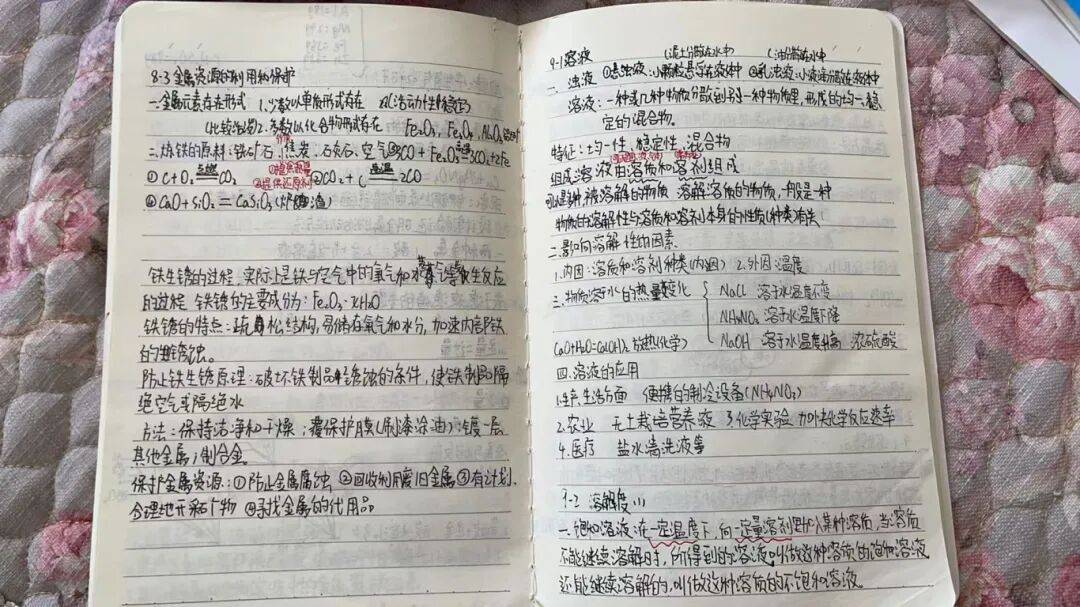 8-3 金属资源的利用和保护
一.金属元素存在形式 1.少数以单质形式存在 (化学活动性较稳定)
(比较活泼)2.多数以化合物形式存在 Fe₂O₃, Fe₃O₄, Al₂O₃
二.炼铁的原料:铁矿石,焦炭,石灰石,空气 ③3CO+Fe₂O₃ 高温 3CO₂+2Fe
①C+O₂ 点燃 CO₂ ①提供热量 ②提供还原剂 ②CO₂+C 高温 2CO
④CaO+SiO₂=CaSiO₃(炉渣)
铁生锈的过程,实际上是铁与空气中的氧气和水蒸气等发生反应
的过程 铁锈的主要成份:Fe₂O₃·xH₂O
铁锈的特点:疏松结构,易储存氧气和水分,加速内部铁
的锈蚀。
防止铁生锈原理:破坏铁制品锈蚀的条件,使铁制品隔
绝空气或隔绝水
方法:保持洁净和干燥;覆保护膜(刷漆涂油);镀一层
其他金属;制合金
保护金属资源:①防止金属腐蚀 ②回收利用废旧金属③有计划、
合理地开采矿物 ④寻找金属的代用品
9-1 溶液 (泥土分散在水中) (油分散在水中)
一、浊液 ①悬浊液:小颗粒悬浮在液体中 ②乳浊液:小液滴分散在液体中
溶液:一种或几种物质分散到另一种物质里,形成的均一、稳
定的混合物。
特征:均一性,稳定性,混合物
组成:溶液由溶质和溶剂组成
被溶解的物质 溶解溶质的物质,一般是一种
物质的溶解性与溶质和溶剂本身的性质(种类)有关
二.影响溶解性的因素
1.内因:溶质和溶剂种类(内因) 2.外因:温度
三.物质溶于水的热量变化 NaCl 溶于水温度不变
NH₄NO₃ 溶于水温度下降
CaO+H₂O=Ca(OH)₂ 放热(化学) NaOH 溶于水温度升高 浓硫酸
四.溶液的应用
1.生产生活方面 便携的制冷设备(NH₄NO₃)
2.农业 无土栽培营养液 3.化学实验 加快化学反应速率
4.医疗 盐水清洗液等
9-2 溶解度
一.饱和溶液:在一定温度下,向一定量溶剂里加入某种溶质,当溶质
不能继续溶解时,所得到的溶液叫做这种溶质的饱和溶液
还能继续溶解的,叫做这种溶质的不饱和溶液